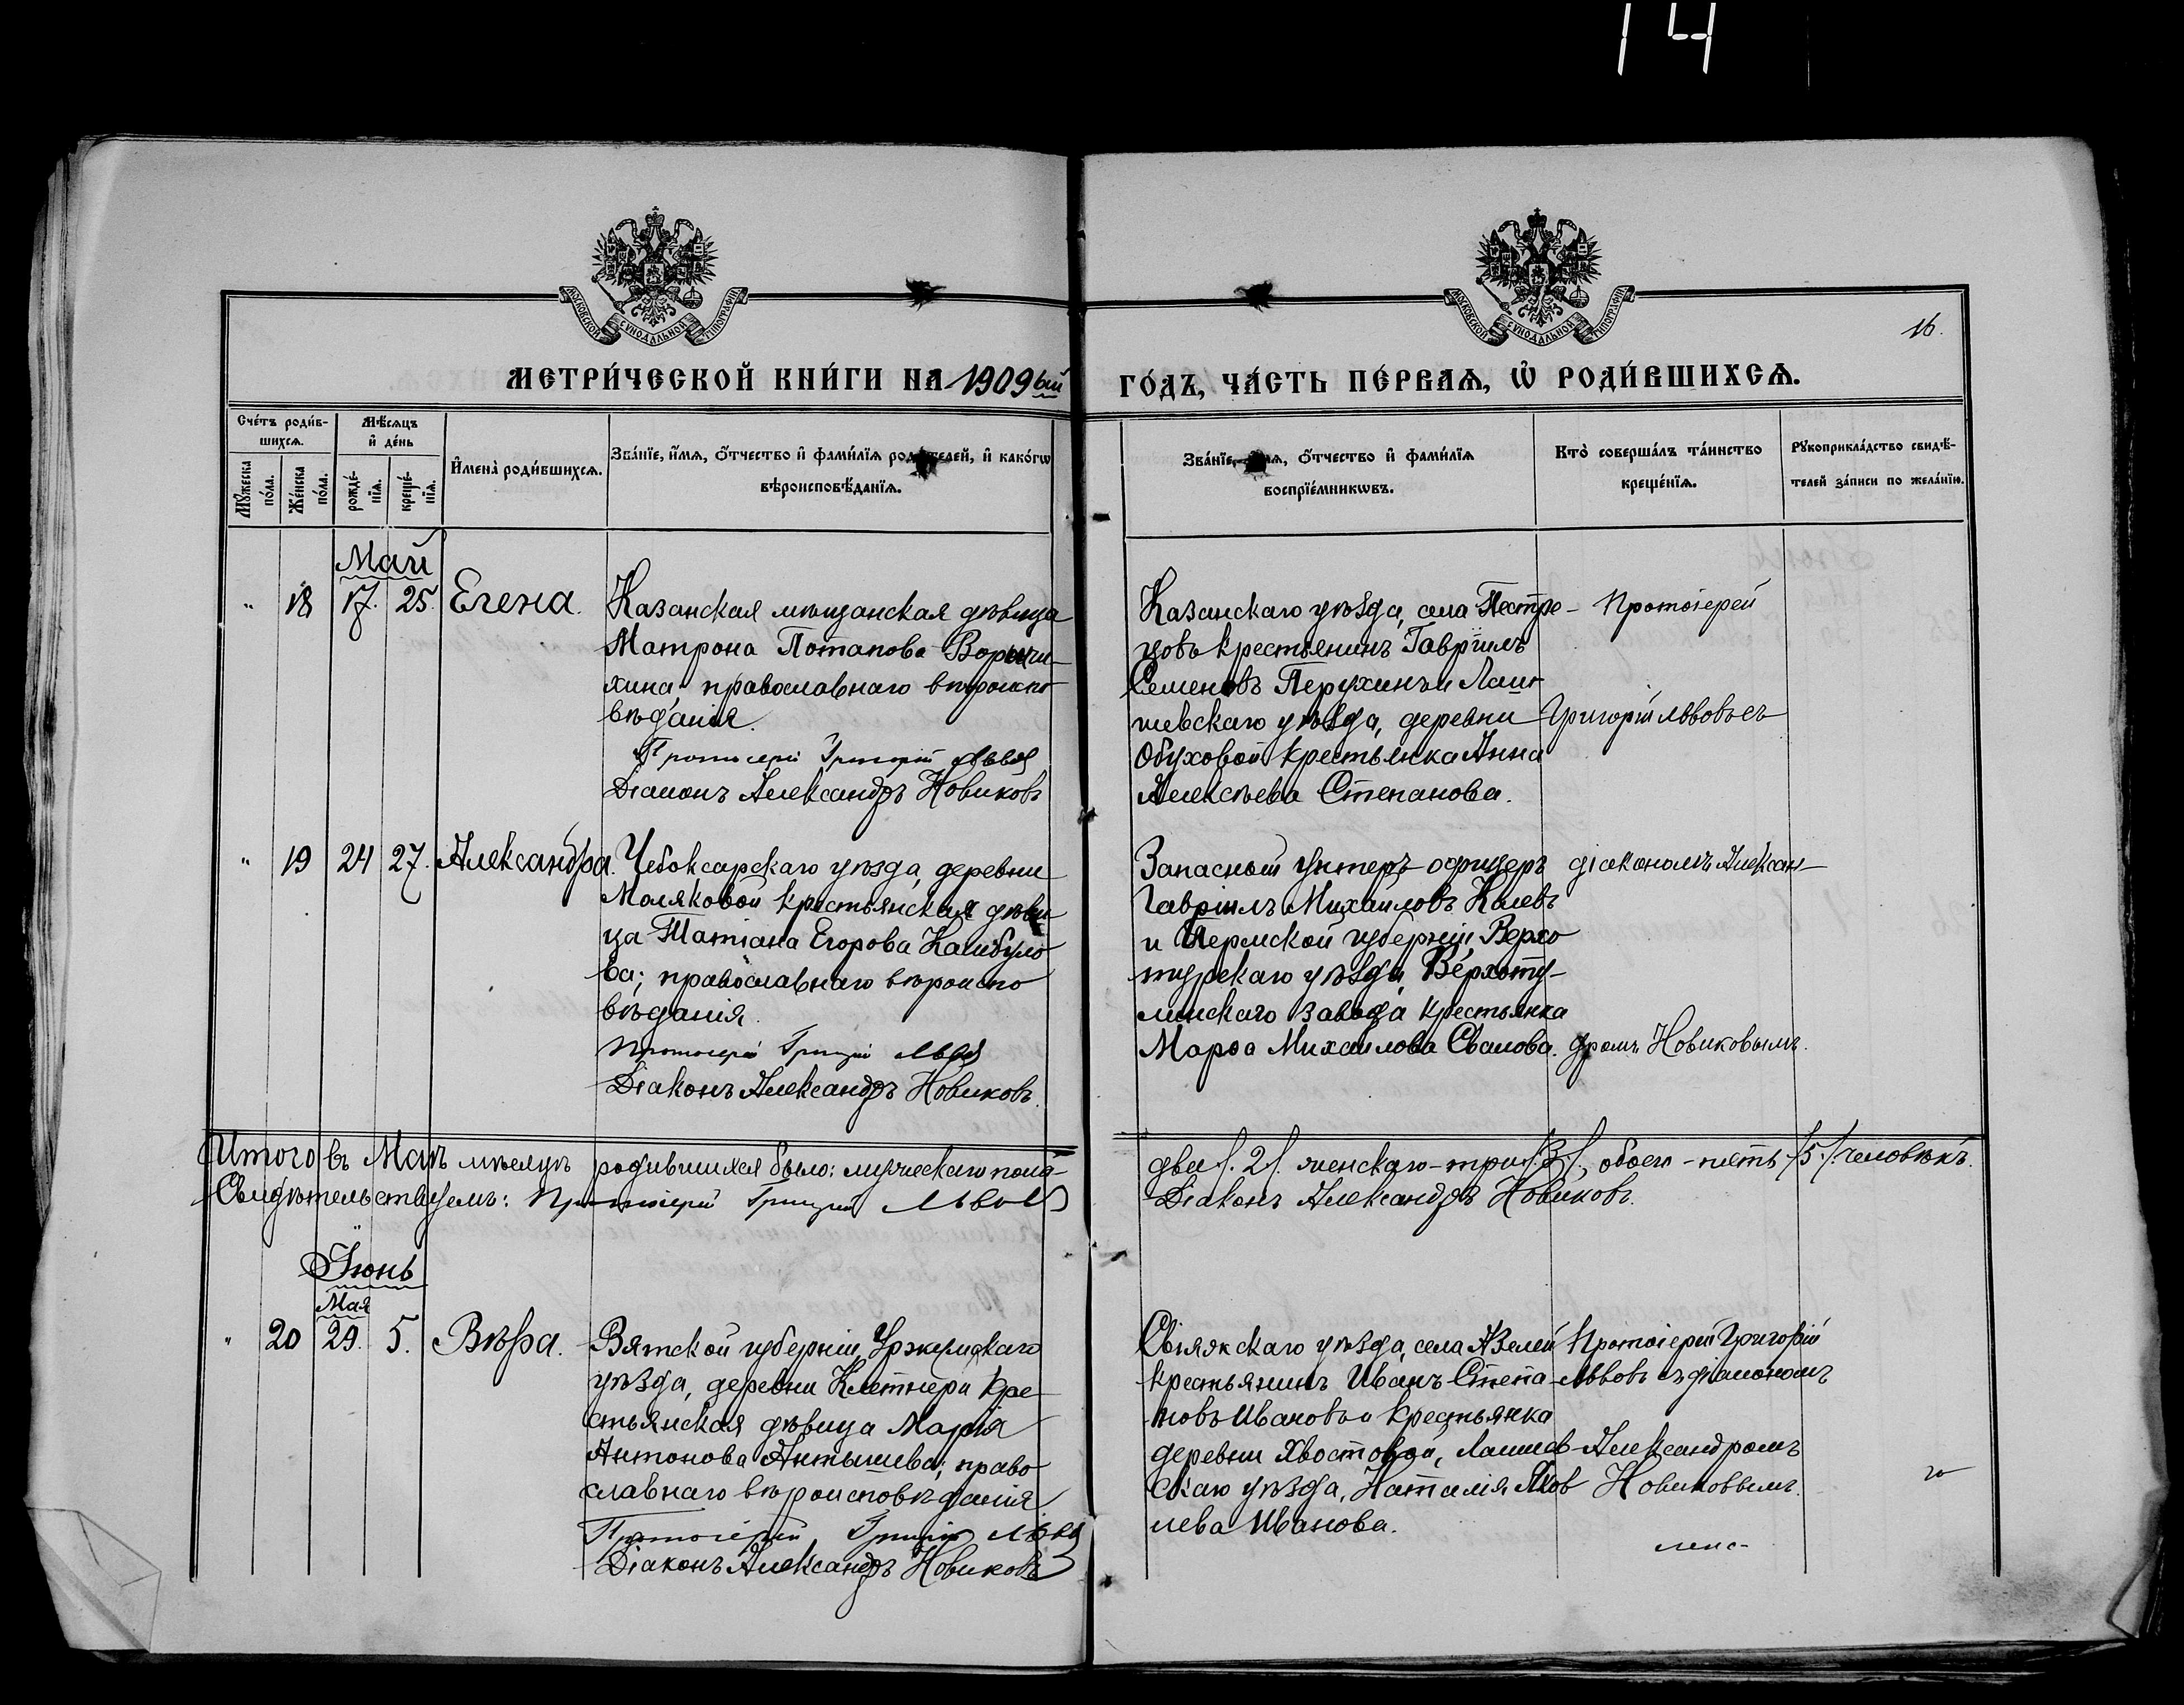 14
МОСКОВСКОЙ СУНОДАЛЬНОЙ ТИПОГРАФІИ
МОСКОВСКОЙ СУНОДАЛЬНОЙ ТИПОГРАФІИ
16.
МЕТРИ́ЧЕСКОЙ КНИ́ГИ НА 1909ый
ГО́ДЪ, ЧА́СТЬ ПЕ́РВАѦ, Ѽ РОДИ́ВШИХСѦ.
Сче́тъ роди́в-
шихсѧ.
Мꙋ́жеска по́ла.
Же́нска по́ла.
Мѣ́сѧцъ
и҆ де́нь
рожде́-
нїѧ.
креще́-
нїѧ.
И҆мена̀ роди́вшихсѧ.
Зва́нїе, и҆́мѧ, ѻ҆́тчество и҆ фами́лїѧ роди́телей, и҆ како́гѡ
вѣроисповѣ́данїѧ.
Зва́нїе, и҆́мѧ, ѻ҆́тчество и҆ фами́лїѧ
воспрїе́мникѡвъ.
Кто̀ соверша́лъ та́инство
креще́нїѧ.
Рꙋкоприкла́дство свидѣ́-
телей за́писи по жела́нїю.
Май
" 18 17. 25. Елена.
Казанская мѣщанская дѣвица
Матрона Потапова
хина православнаго вѣроиспо
вѣданія.
Протоіерей Григорій Львовъ
Діаконъ Александръ Новиковъ
Казанскаго уѣзда, села Пестре-
цовъ крестьянинъ Гавріилъ
Семеновъ Перухинъ и Лаи-
шевскаго уѣзда, деревни
Обуховой крестьянка Анна
Алексѣева Степанова.
Протоіерей
Григорій Львовъ съ
" 19 24 27. Александра.
Чебоксарскаго уѣзда, деревни
Моляковой крестьянская дѣви
ца Татіана Егорова
ва; православнаго вѣроиспо
вѣданія.
Протоіерей Григорій Львовъ
Діаконъ Александръ Новиковъ.
Запасной унтеръ-офицеръ
Гавріилъ Михаиловъ
и Пермской губерніи, Верхо
турскаго уѣзда, Верхоту-
линскаго завода крестьянка
Марѳа Михаилова
діакономъ Алексан-
дромъ Новиковымъ.
Итого въ Маѣ мѣсяцѣ родившихся было: мужескаго пола-
два /. 2 /. женскаго-три /. 3 /., обоего-пять /. 5 /. человѣкъ.
Свидѣтельствуемъ: Протоіерей Григорій Львовъ
Діаконъ Александръ Новиковъ.
Іюнь
Мая
" 20 29. 5. Вѣра.
Вятской губерніи, Уржумскаго
уѣзда, деревни кре
стьянская дѣвица Марія
Антонова Антышева; право
славнаго вѣроисповѣданія
Протоіерей Григорій Львовъ
Діаконъ Александръ Новиковъ
Свіяжскаго уѣзда, села Азелей
крестьянинъ Иванъ Степа
новъ Ивановъ и крестьянка
деревни Хвостовой, Лаишев-
скаго уѣзда, Наталія Яков
лева Иванова.
Протоіерей Григорій
Львовъ съ діакономъ
Александромъ
Новиковымъ.